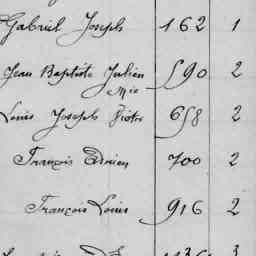 Gabriel Joseph 162 1
Jean Baptiste Julien 590 2
Mie
Louis Joseph Victor 658 2
François Adrien 700 2
François Louis 916 2